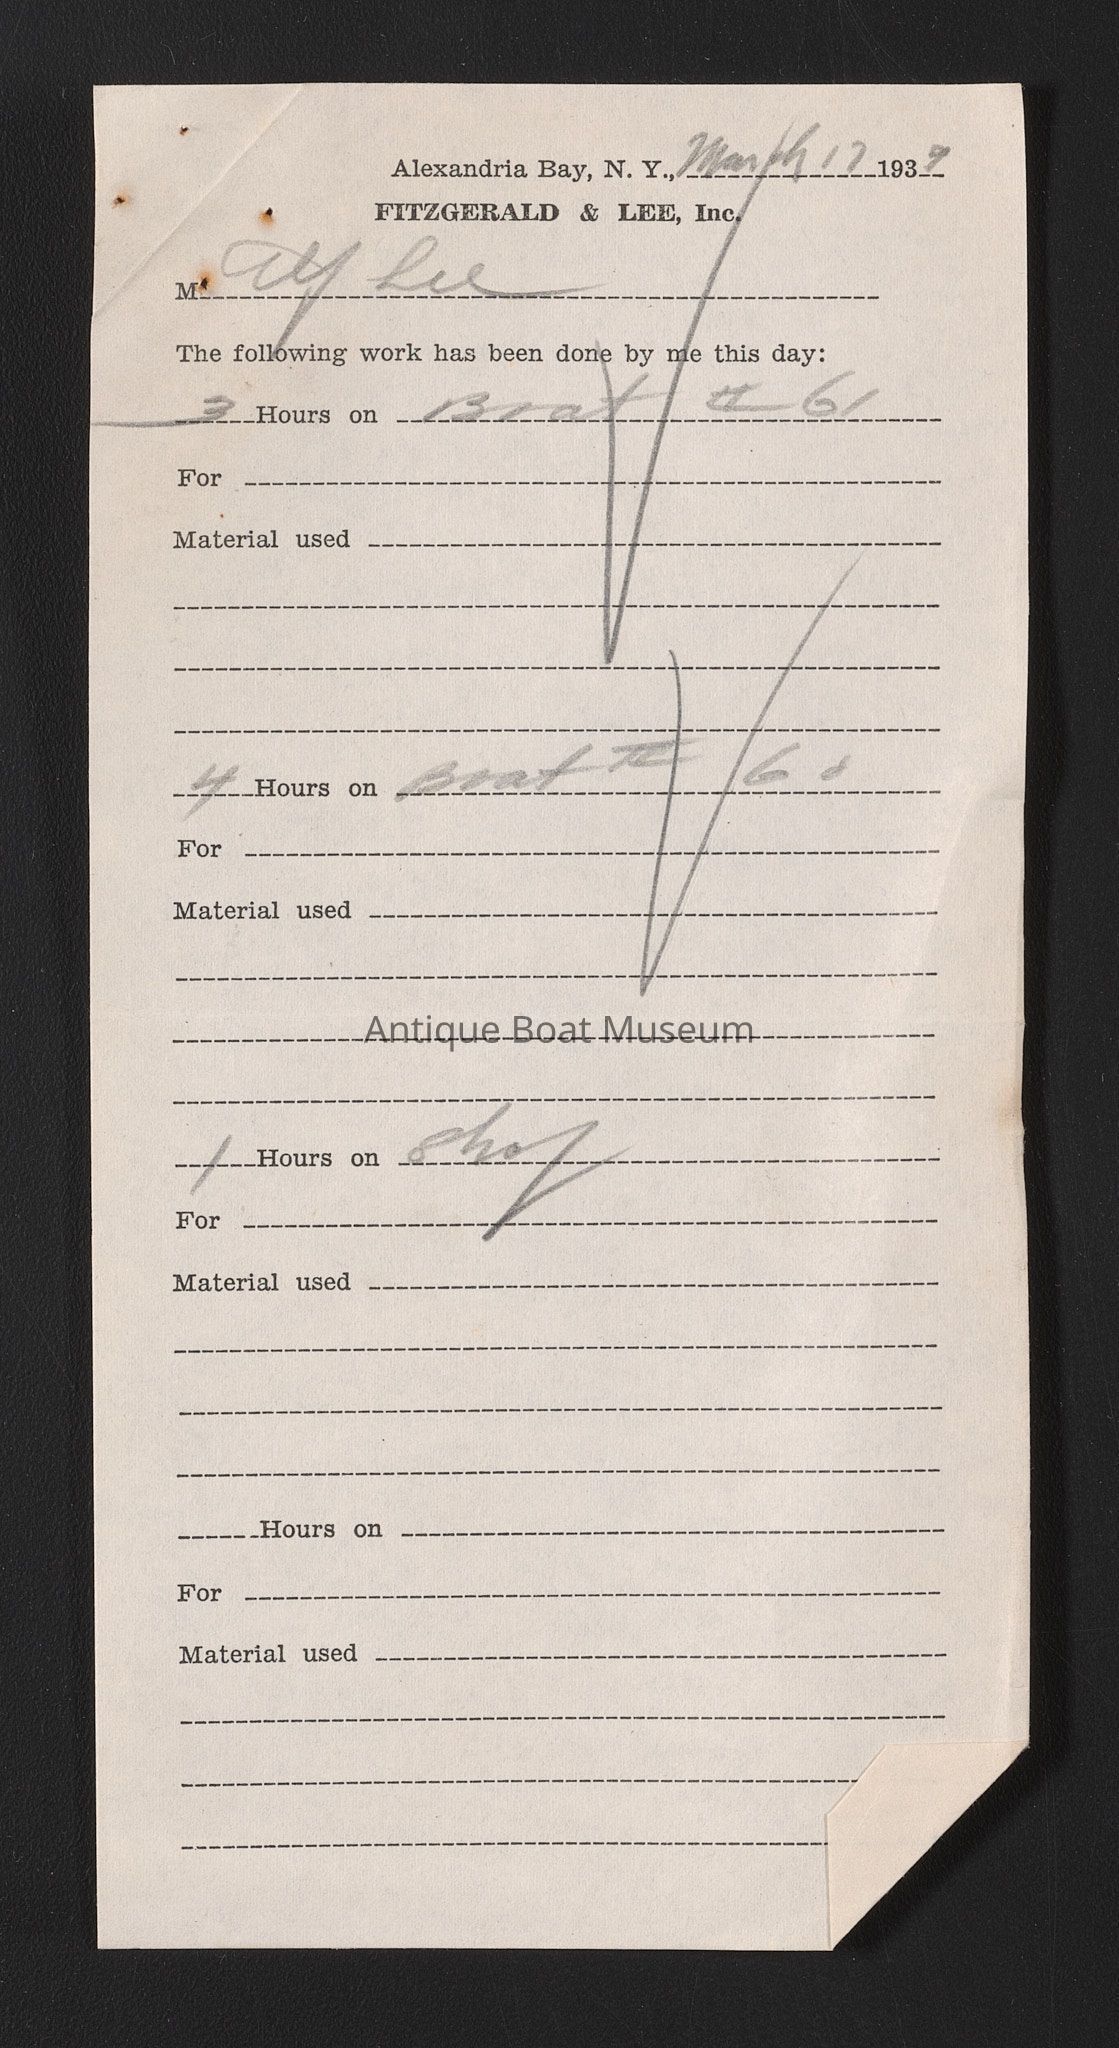 Alexandria Bay, N. Y., March 17 1939
FITZGERALD & LEE, Inc.
M. Alf Lee
The following work has been done by me this day:
3 Hours on Boat # 61
For
Material used
4 Hours on Boat # 60
For
Material used
Antique Boat Museum
1 Hours on Shop
For
Material used
Hours on
For
Material used